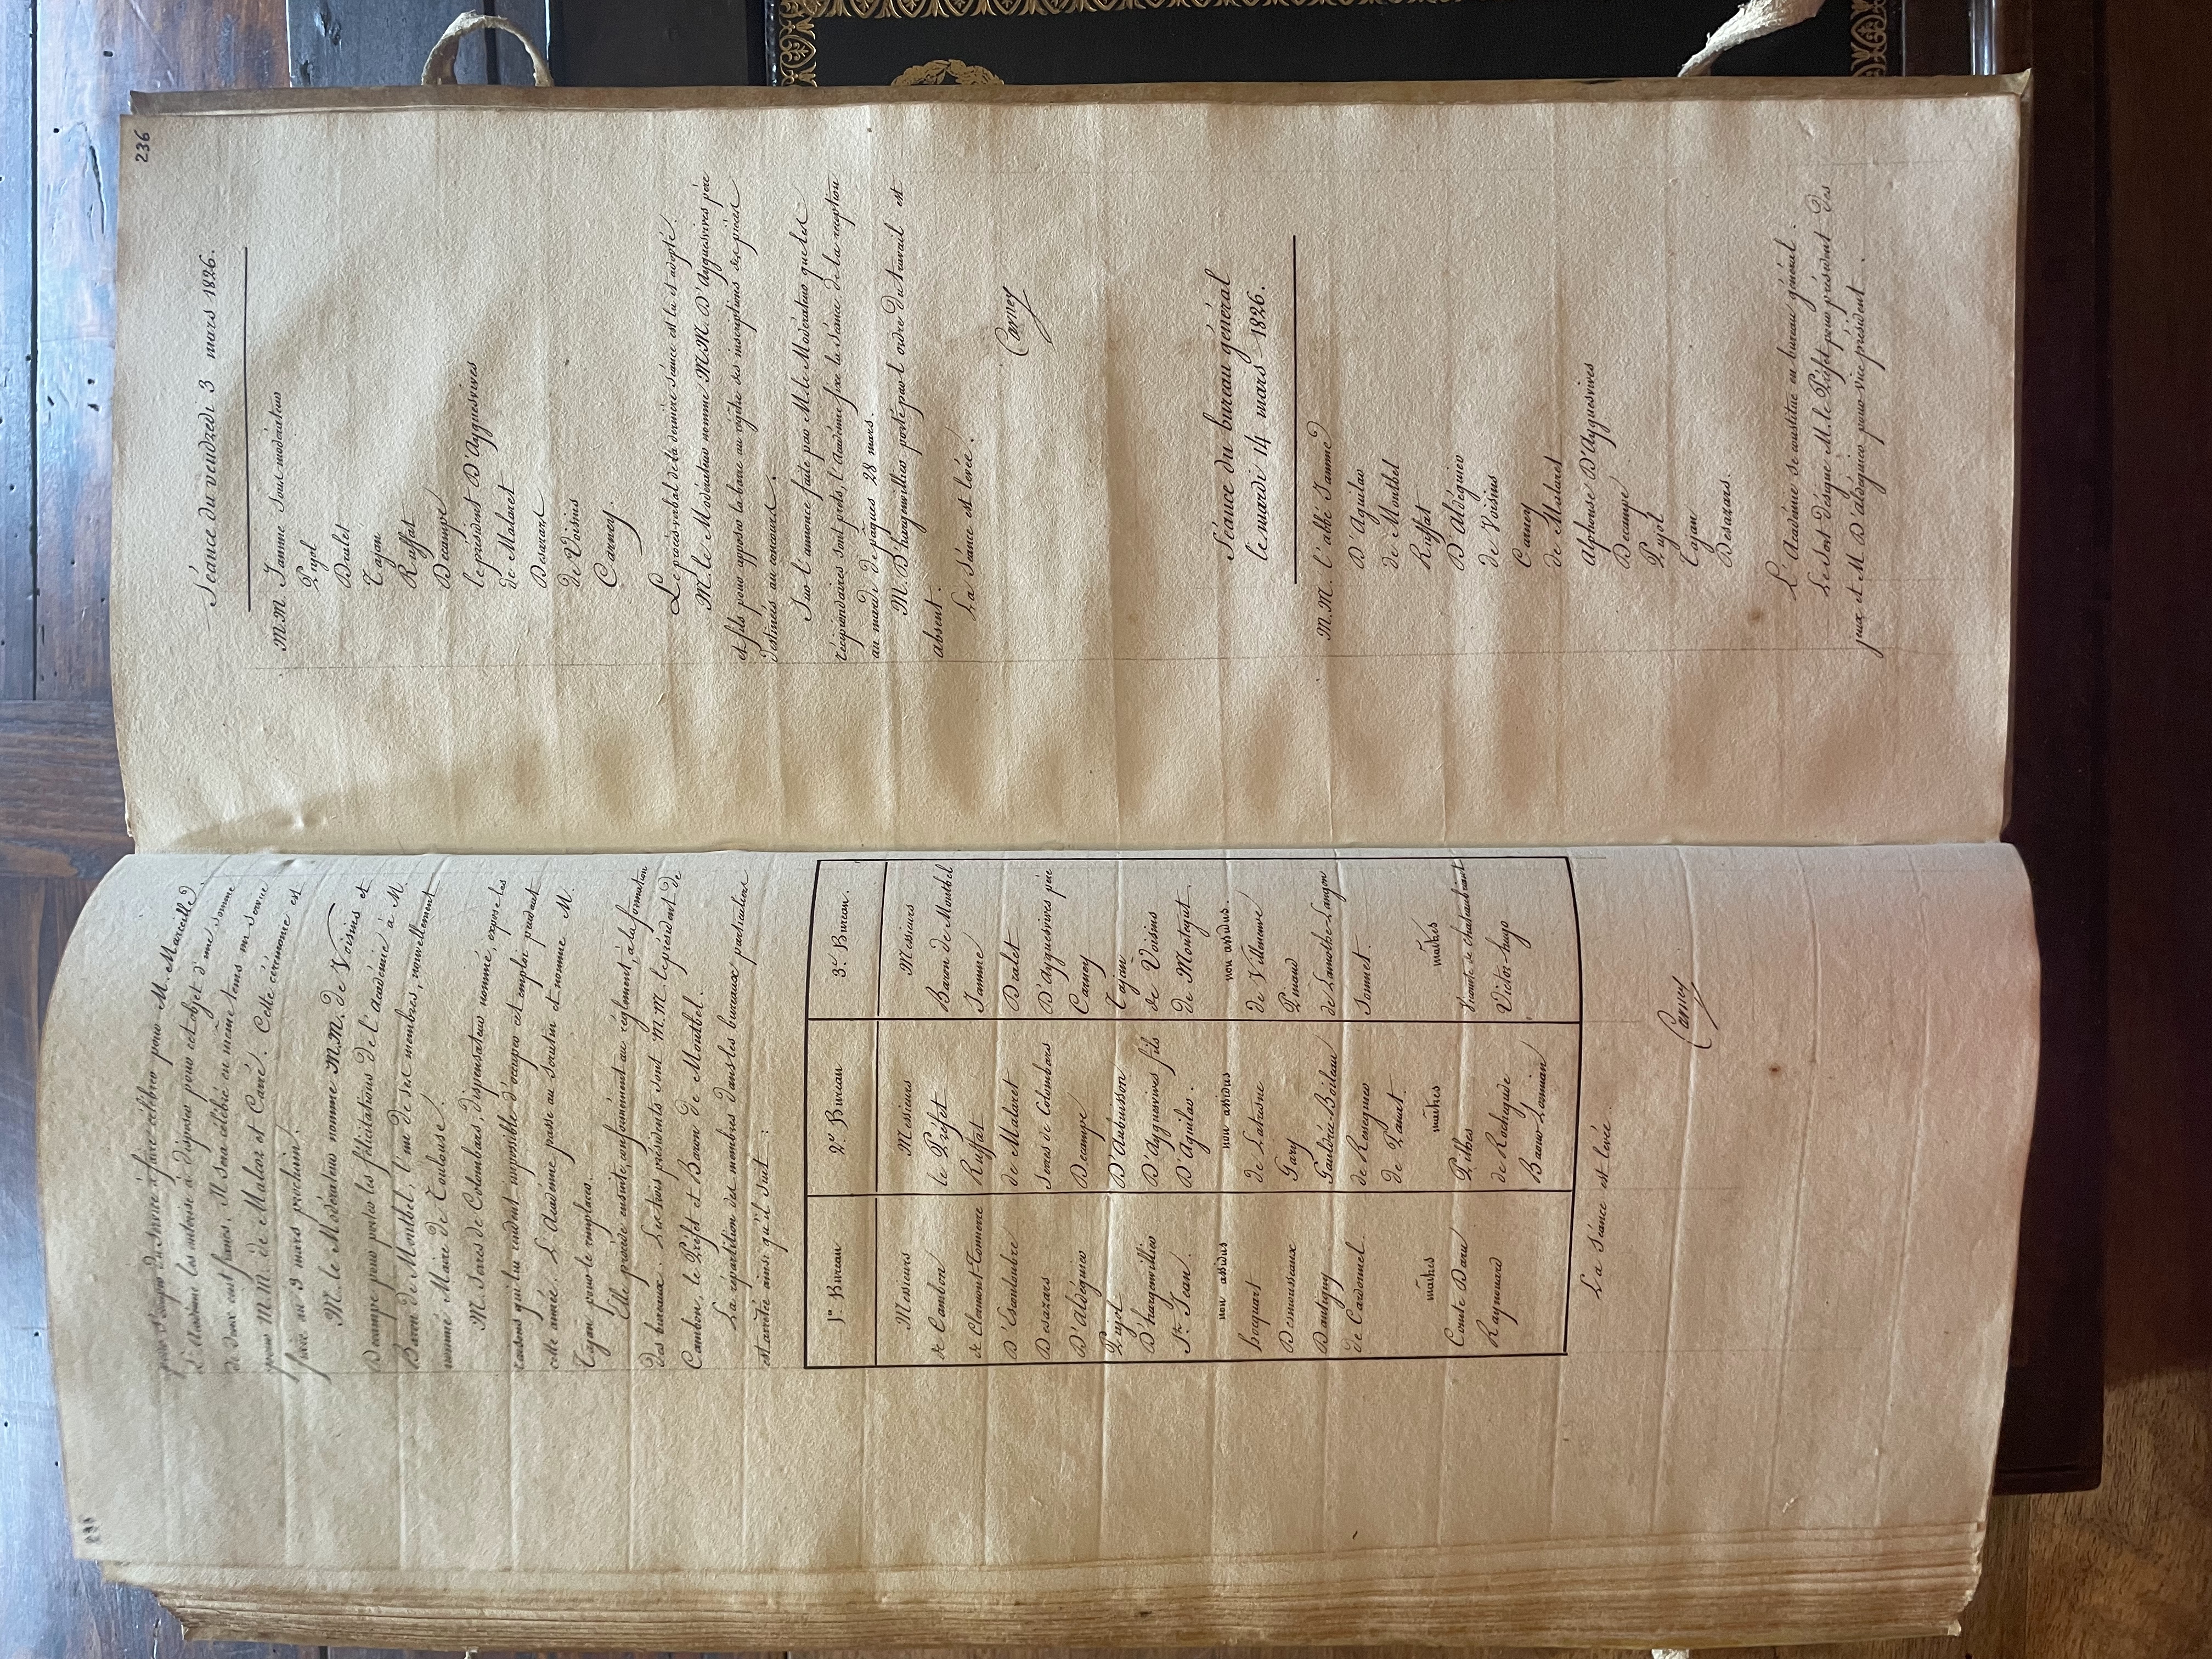 235
pour s'occuper du service à faire célébrer pour M. Marcassus
L'Académie les autorise à disposer pour cet objet d'une somme
de deux cent francs. Il sera célébré en même tems un service
pour M.M. de Malar et Carré. Cette cérémonie est
fixée au 9 mars prochain.
M. le Modérateur nomme M.M. de Voisins et
Decampe pour porter les félicitations de l'académie à M.
Baron de Montbel, l'un de ses membres, nouvellement
nommé Maire de Toulouse.
M. Serres de Colombars, dispensateur nommé, expose les
raisons qui lui rendent impossible d'occuper cet emploi pendant
cette année. L'Académie passe au scrutin et nomme M.
Tajan pour le remplacer.
Elle procède ensuite, conformément au règlement, à la formation
des bureaux. Les trois présidents sont M.M. le président de
Cambon, le Préfet et Baron de Montbel.
La répartition des membres dans les bureaux particuliers
est arrêtée ainsi qu'il suit :
1er Bureau
Messieurs
de Cambon
de Clermont-Tonnerre
D'Escouloubre
Desazars
D'Aldéguier
Pujol
D'hargenvillier
St. Jean.
non assidus
hocquart
Desmousseaux
Dantigny
de Cardonnel.
maîtres
Comte Daru
Raynouard
2e. Bureau
Messieurs
le Préfet
Ruffat
de Malaret
Serres de Colombars
Decampe
D'Aubuisson
D'Ayguesvives fils
D'Aguilar.
non assidus
de Latresne
Gary
Gaudrée-Boileau
de Resseguier
de Panat.
maîtres
Pilhes
de Rochegude
Baour-Lormian
3e. Bureau.
Messieurs
Baron de Montbel
Jamme
Dralet
D'Ayguesvives père
Carney
Tajan
de Voisins
de Montegut
non assidus.
de Villeneuve
Pinaud
de Lamothe-Langon
Soumet.
maîtres
Vicomte de chateaubriant
Victor-hugo
La séance est levée.
Carney
236
Séance du vendredi 3 mars 1826.
M.M. Jamme sous modérateur
Pujol
Dralet
Tajan
Ruffat
Decampe
le président D'Ayguesvives
de Malaret
Desazars
de Voisins
Carney.
Le procès-verbal de la dernière séance est lu et adopté.
M. le Modérateur nomme M.M. D'Ayguesvives père
et fils pour apposer la barre au registre des inscriptions des pièces
destinées au concours.
Sur l'annonce faite par M. le Modérateur que les
récipiendaires sont prêts, l'Académie fixe la séance de la réception
au mardi de pâques 28 mars.
M. D'hargenvillier porté par l'ordre du travail est
absent.
La séance est levée.
Carney
Séance du bureau général
le mardi 14 mars 1826.
M.M. l'abbé Jamme
D'Aguilar
de Montbel
Ruffat
D'Aldéguier
de Voisins
Carney
de Malaret
Alphonse D'Ayguesvives
Decampe
Pujol
Tajan
Desazars.
L'Académie se constitue en bureau général.
Le sort désigne M. le Préfet pour président des
jeux et M. D'aldéguier pour vice-président.